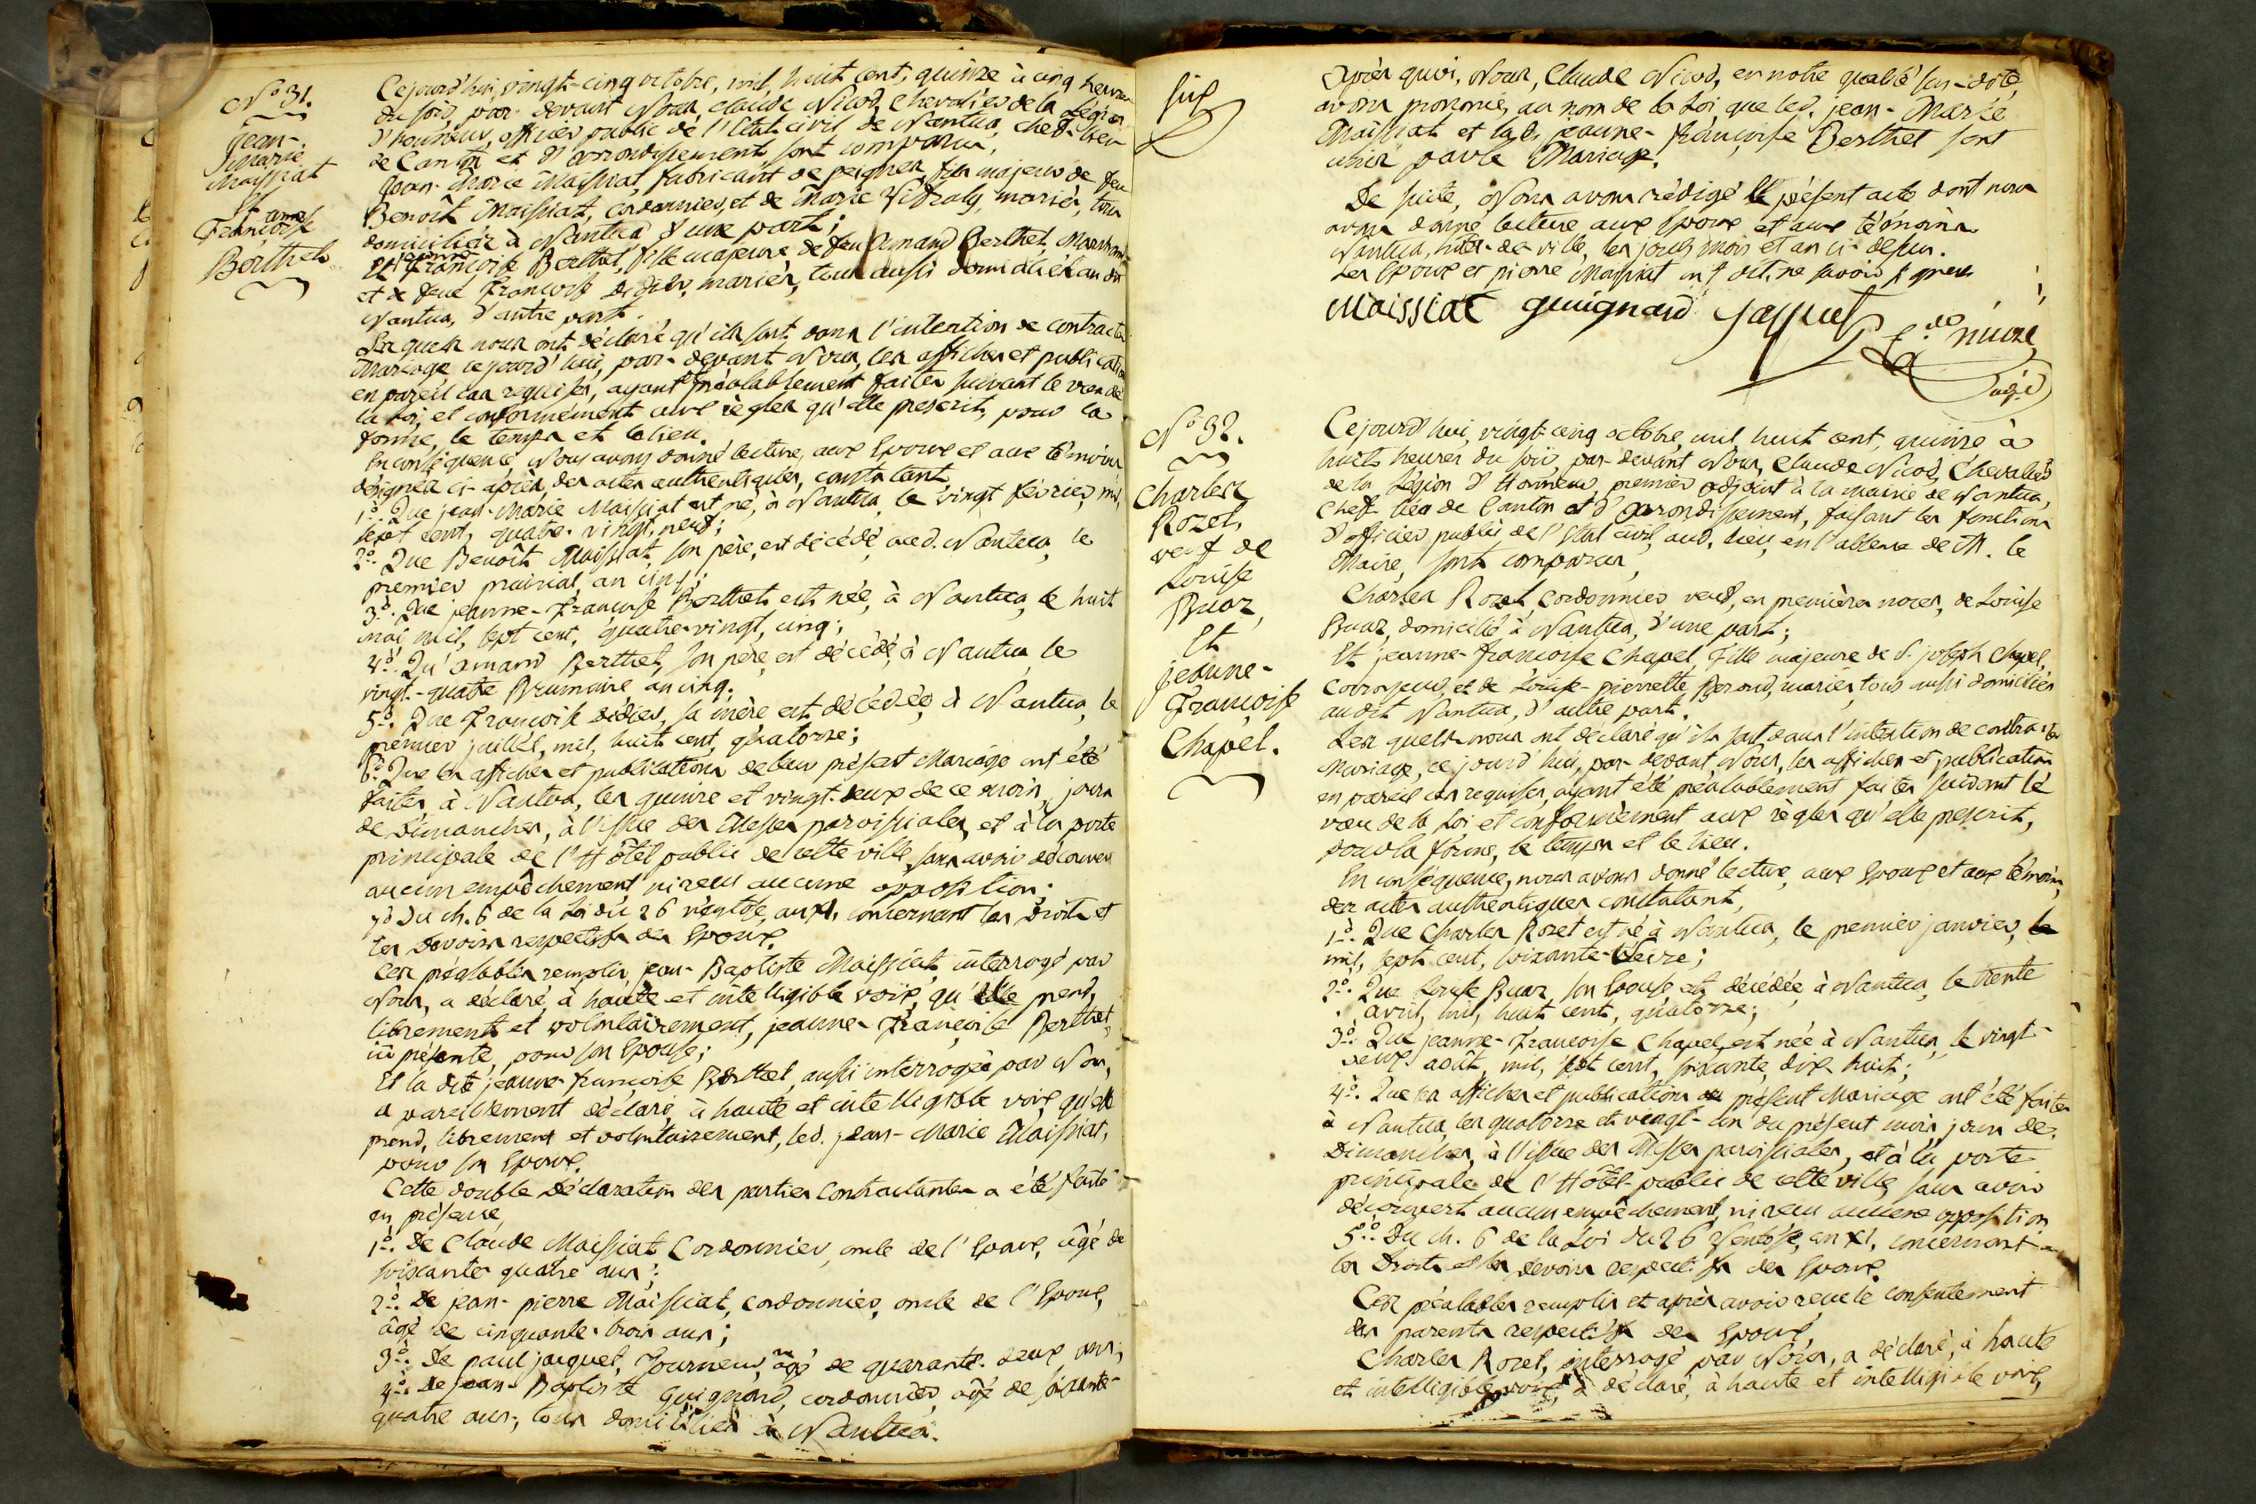 N.º 31.
Jean-
Marie
Maissiat
Et
jeanne
Françoise
Berthet
Cejourd'hui, vingt-cinq octobre, mil, huit cent, quinze à cinq heures
du soir, par-devant Nous, Claude Nicod, Chevalier de la Légion
d'honneur, officier public de l'Etat civil de Nantua, chef-lieu
de Canton et d'arrondissement sont comparus,
Jean-Marie Maissiat, fabricant de peignes, fils majeur de feu
Benoît Maissiat, cordonnier, et de Marie Vidraly, mariés, tous
domiciliés à Nantua d'une part;
Et jeanne Françoise Berthet, fille majeure, de feu Amand Berthet, Marchand
et de feue Françoise Didier, mariés, tous aussi domiciliés audit
Nantua, d'autre part.
Lesquels nous ont déclaré qu'ils sont dans l'intention de contracter
Mariage cejourd'hui, par-devant Nous, les affiches et publications
en pareil cas requises, ayant été préalablement faites suivant le vœu de
la Loi et conformément aux règles qu'elle prescrit, pour la
forme, le temps et le lieu.
En conséquence, Nous avons donné lecture, aux Epoux et aux témoins
désignés ci-après, des actes authentiques, constatant
1.º Que jean-Marie Maissiat est né, à Nantua, le vingt février, mil,
sept cent, quatre-vingt, neuf;
2.º Que Benoît Maissiat, son père, est décédé, aud. Nantua, le
premier prairial, an cinq;
3.º Que jeanne-Françoise Berthet est née, à Nantua, le huit
mai, mil, sept cent, quatre-vingt, cinq;
4.º Qu'amand Berthet, son père, est décédé, à Nantua, le
vingt-quatre Brumaire an cinq.
5.º Que Françoise Didier, sa mère est décédée, à Nantua, le
premier juillet, mil, huit cent, quatorze;
6.º Que les affiches et publications de leur présent Mariage ont été
faites à Nantua, les quinze et vingt-deux de ce mois, jours
de Dimanches, à l'issue des Messes paroissiales, et à la porte
principale de l'Hôtel public de cette ville, sans avoir découvert
aucun empêchement ni reçu aucune opposition;
7.º Du ch. 6 de la Loi du 26 ventôse, an XI, concernant les Droits et
les Devoirs respectifs des Epoux.
Ces préalables remplis, jean-Baptiste Maissiat interrogé par
Nous, a déclaré, à haute et intelligible voix, qu'elle prend,
librement et volontairement, jeanne-Françoise Berthet,
ici présente, pour son Epouse;
Et la dite jeanne-Françoise Berthet, aussi interrogée par Nous,
a pareillement déclaré, à haute et intelligible voix, qu'elle
prend, librement et volontairement, led. jean-Marie Maissiat,
pour son Epoux.
Cette double Déclaration des parties contractantes a été faite
en présence,
1.º De Claude Maissiat Cordonnier, oncle de l'Epoux, âgé de
soixante-quatre ans;
2.º De jean-pierre Maissiat, cordonnier, oncle de l'Epoux,
âgé de cinquante-trois ans;
3.º De paul jacquet, Tourneur, âgé de quarante-deux ans;
4.º De jean-Baptiste Guignard, cordonnier, âgé de soixante-
quatre ans; tous domiciliés à Nantua.
Après quoi, Nous, Claude Nicod, en notre qualité sus-dite,
avons prononcé, au nom de la Loi, que led. jean-Marie
Maissiat et lad. jeanne-françoise Berthet sont
unis par le Mariage.
De suite, Nous avons rédigé le présent acte dont nous
avons donné lecture aux Epoux et aux témoins.
Nantua, hôtel-de-ville, les jours mois et an ci-dessus.
Les Epoux et pierre Maissiat ont dit ne savoir signer
Maissiat guignard jacquet
N.º 32.
Charles
Rozet,
veuf de
Louise
Buaz,
Et
jeanne-
Françoise
Chapel.
Cejourd'hui, vingt-cinq octobre, mil, huit cent, quinze à
huit heures du soir, par-devant Nous, Claude Nicod, Chevalier
de la Légion d'Honneur, premier adjoint à la mairie de Nantua,
Chef-lieu de Canton et d'arrondissement, faisant les fonctions
d'officier public de l'Etat civil, aud. lieu, en l'absence de M. le
Maire, sont comparus,
Charles Rozet, cordonnier veuf, en premières noces, de Louise
Buaz, domicilié à Nantua, d'une part;
Et jeanne-Françoise Chapel, fille majeure de S. joseph Chapel,
Corroyeur, et de Louise-pierrette Beroud, mariés, tous aussi domiciliés
audit Nantua, d'autre part.
Lesquels nous ont déclaré qu'ils sont dans l'intention de contracter
Mariage, ce jourd'hui, par-devant Nous, les affiches et publications
en pareil cas requises, ayant été préalablement faites suivant le
vœu de la Loi et conformément aux règles qu'elle prescrit,
pour la forme, le temps et le lieu.
En conséquence, nous avons donné lecture, aux Epoux et aux témoins,
des actes authentiques constatant,
1.º Que Charles Rozet est né à Nantua, le premier janvier,
mil, sept cent, soixante-treize;
2.º Que Louise Buaz, son Epouse est décédée, à Nantua, le trente
avril, mil, huit cent, quatorze;
3.º Que jeanne-Françoise Chapel est née à Nantua, le vingt-
deux août, mil, sept cent, soixante, dix-huit;
4.º Que les affiches et publications du présent Mariage ont été faites
à Nantua, les quatorze et vingt-un du présent mois, jours de
Dimanches, à l'issue des Messes paroissiales, et à la porte
principale de l'Hôtel public de cette ville sans avoir
découvert aucun empêchement, ni reçu aucune opposition
5.º Du ch. 6 de la Loi du 26 Ventôse, an XI, concernant
les Droits et les devoirs respectifs des Epoux.
Ces préalables remplis et après avoir reçu le consentement
des parents respectifs des Epoux,
Charles Rozet, interrogé par Nous, a déclaré, à haute
et intelligible voix, a déclaré, à haute et intelligible voix,